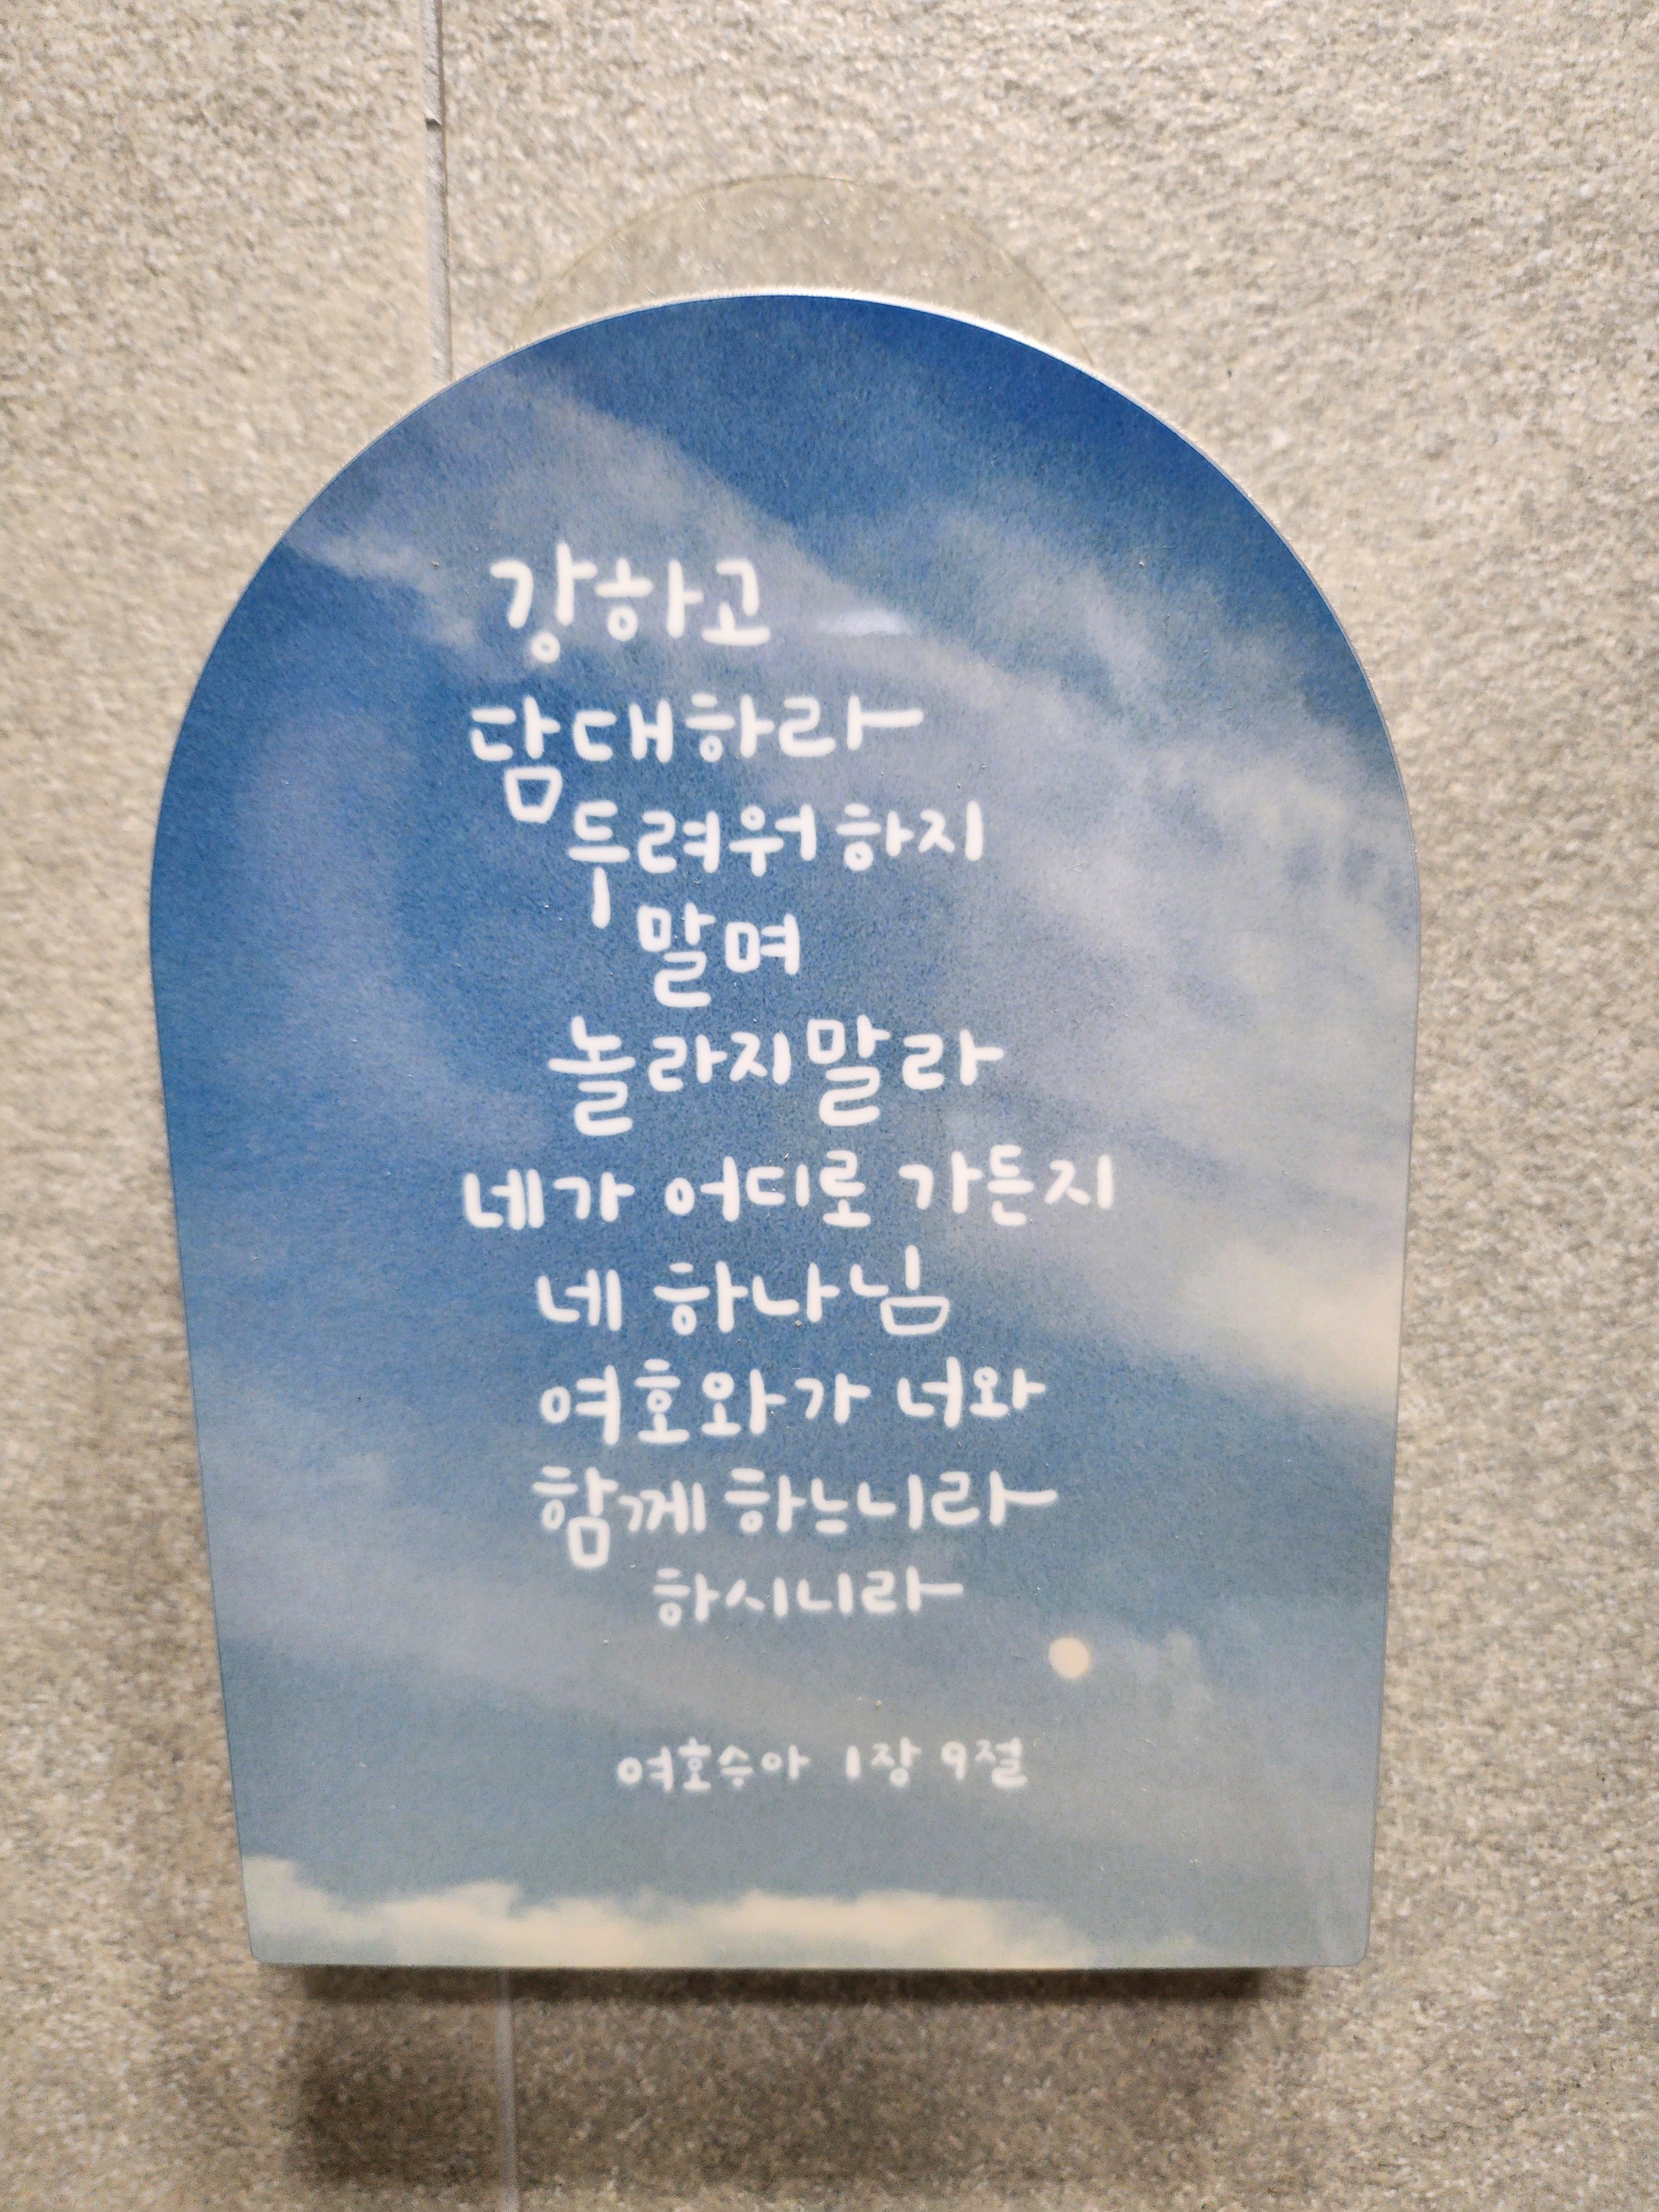 강하고
담대하라
두려워 하지
말며
놀라지말라
네가 어디로 가든지
네 하나님
여호와가 너와
함께 하느니라
하시니라
여호수아 1장 9절